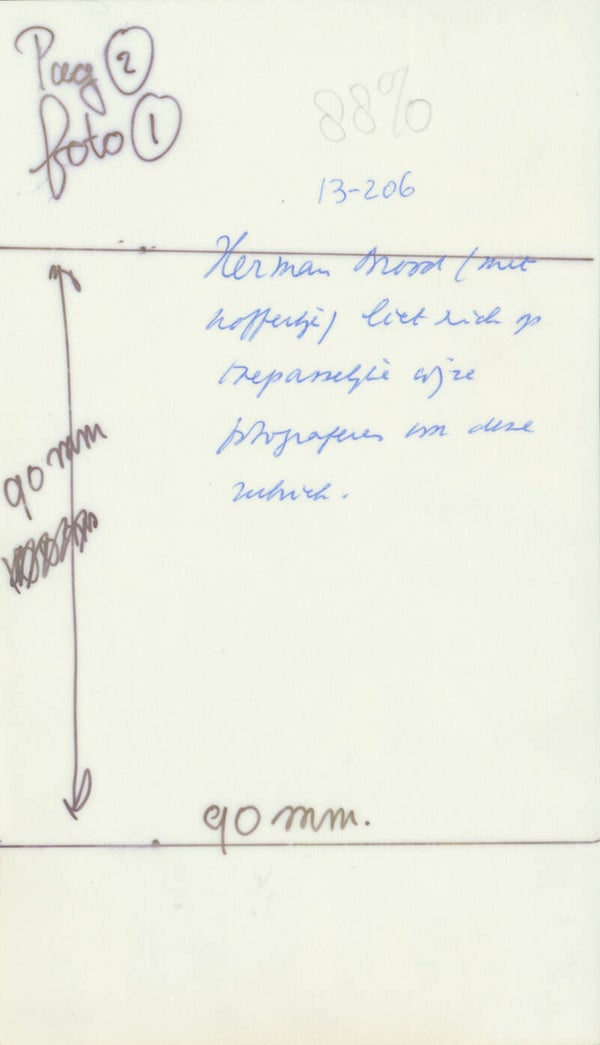 Pag 2
foto 1
88%
13-206
Herman Brood (met
koffertje) liet zich op
toepasselijke wijze
fotograferen om deze
rubriek.
90 mm
90 mm.